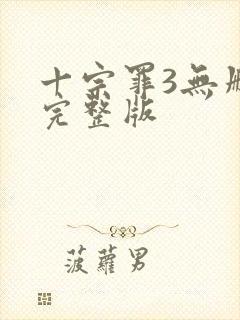 十宗罪3無
完整版
菠蘿男